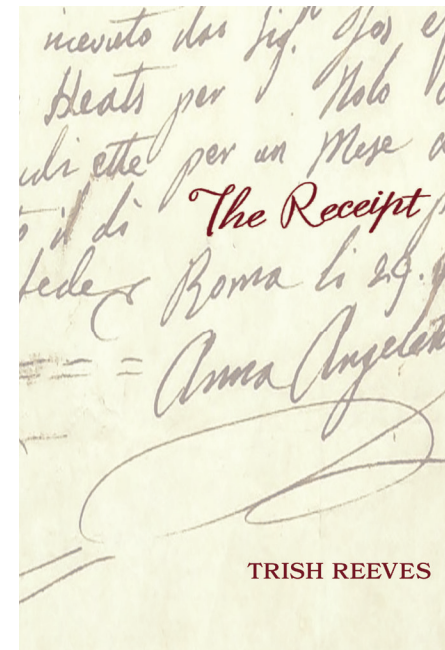 ricevuto dal Sig.r
Heats per Nolo
per un Mese
di
The Receipt
fede Roma li 29.
Anna Angelett
TRISH REEVES